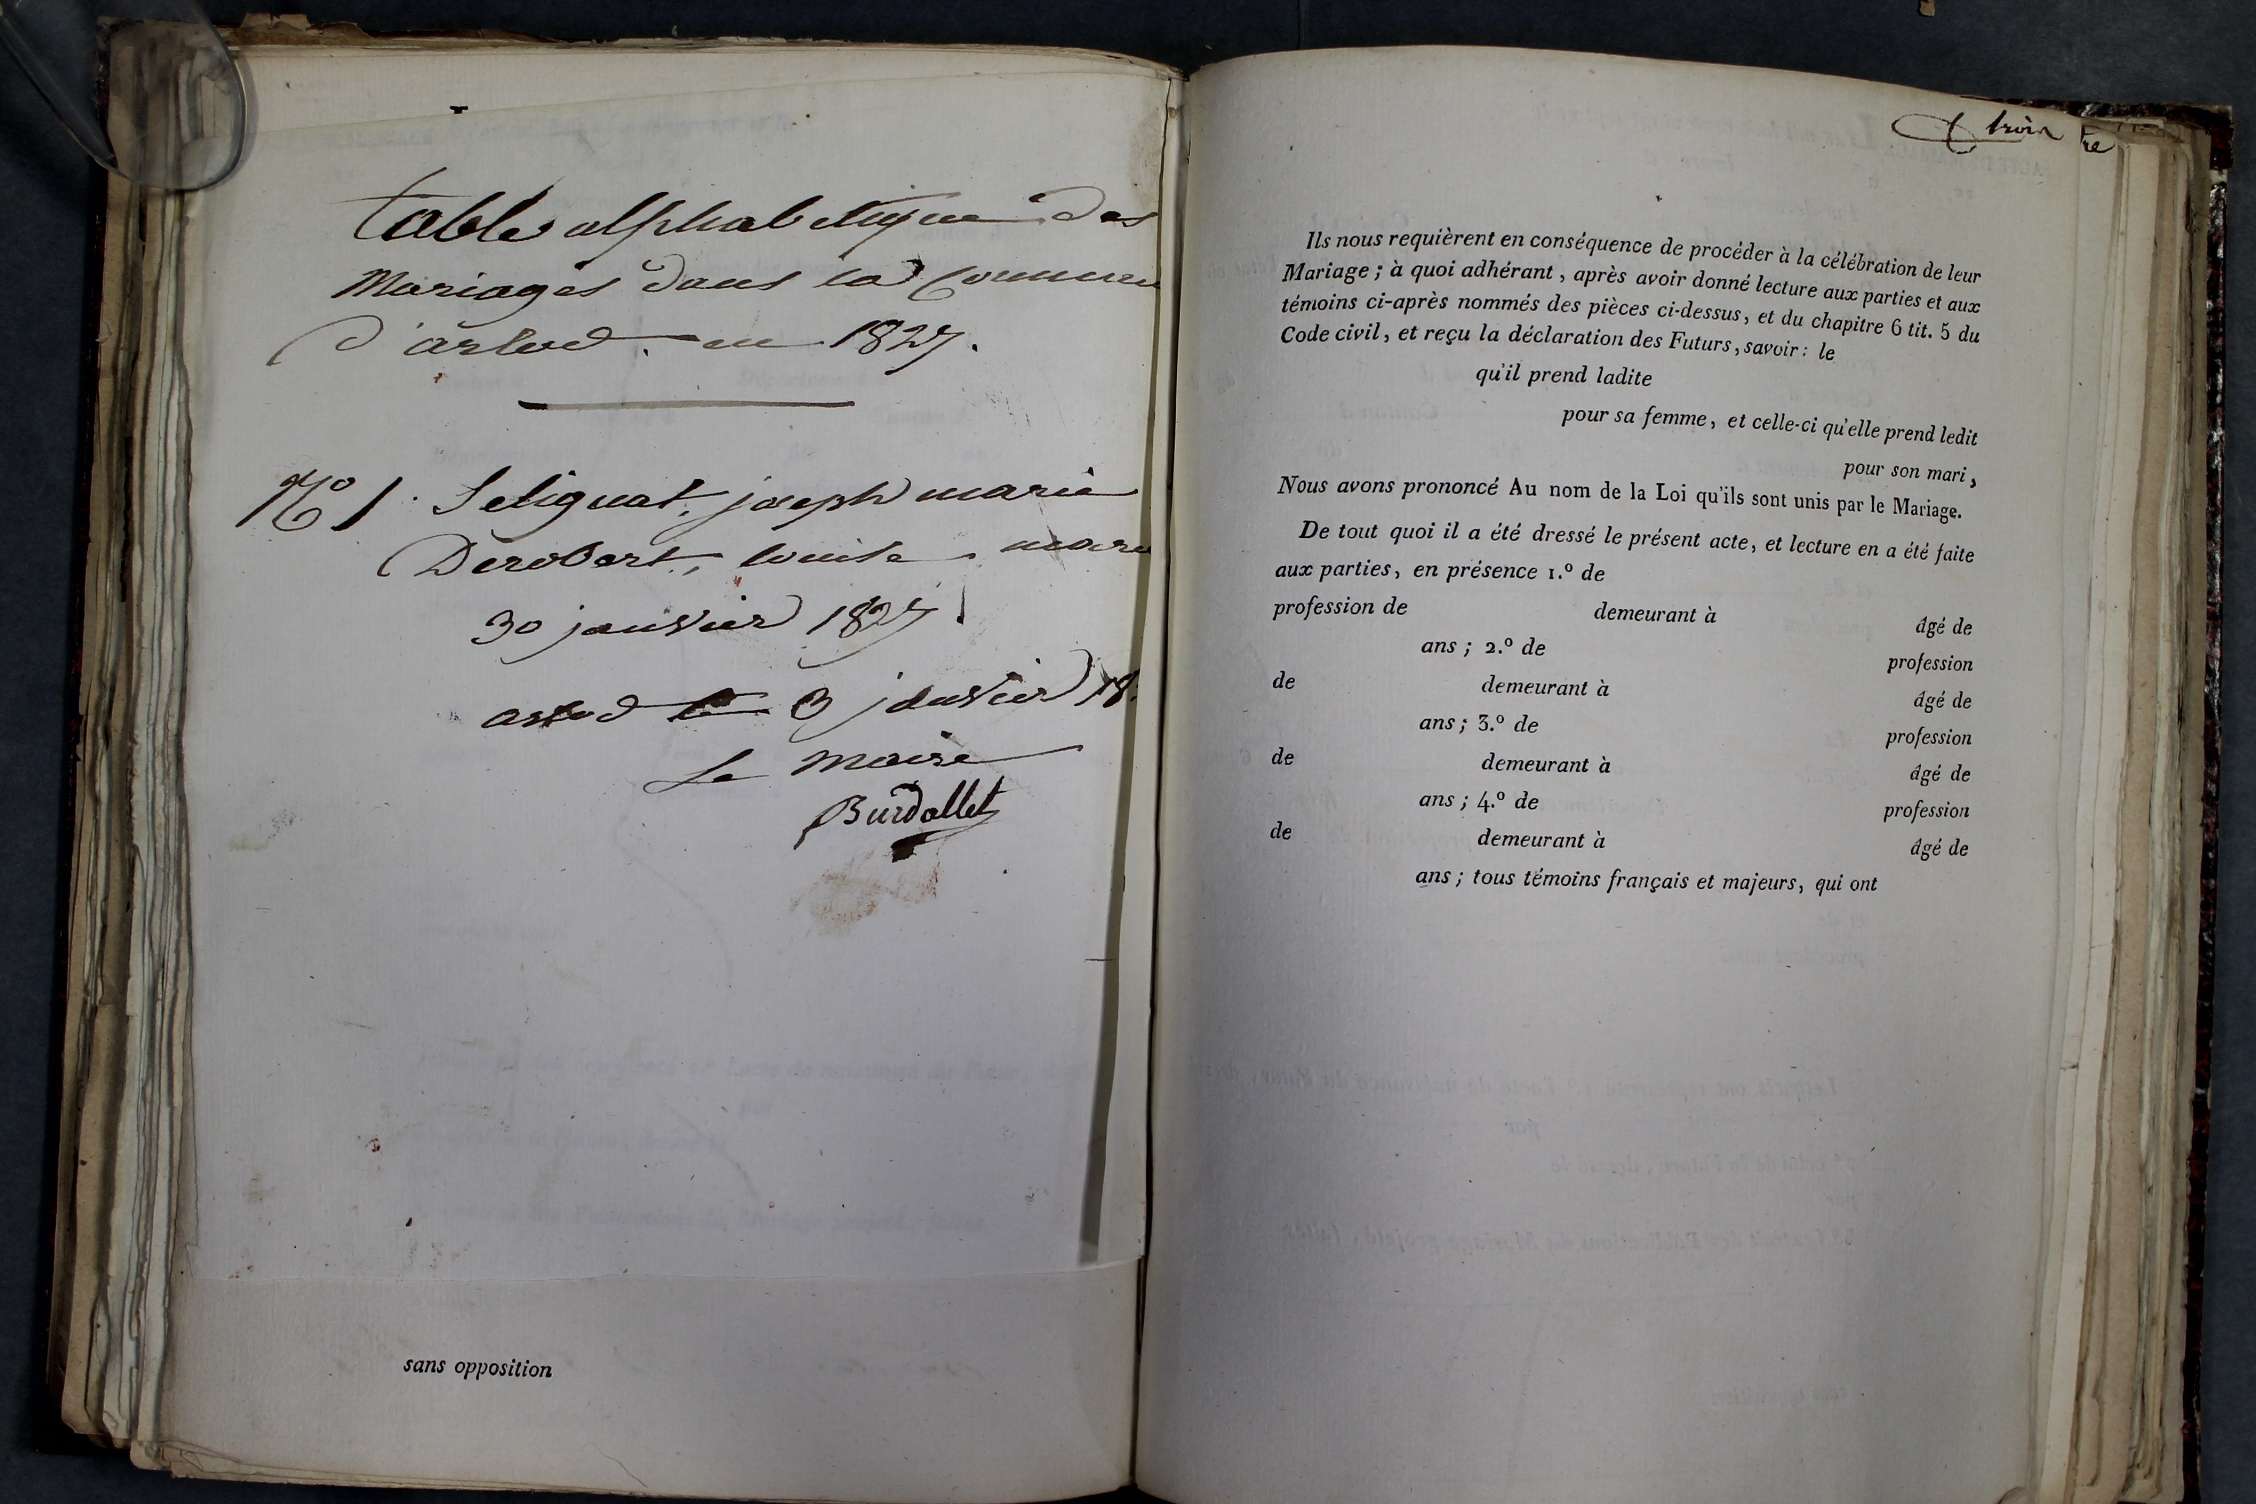 table alphabetique des
Mariages dans la Commune
d'arlod en 1827.
No 1. Seliguat, joseph marie
Derobert, louise marie
30 janvier 1827
arlod le 3 janvier 18
Le Maire
Burdallet
sans opposition
trois
Ils nous requièrent en conséquence de procéder à la célébration de leur
Mariage ; à quoi adhérant, après avoir donné lecture aux parties et aux
témoins ci-après nommés des pièces ci-dessus, et du chapitre 6 tit. 5 du
Code civil, et reçu la déclaration des Futurs, savoir : le
qu'il prend ladite
pour sa femme, et celle-ci qu'elle prend ledit
pour son mari,
Nous avons prononcé Au nom de la Loi qu'ils sont unis par le Mariage.
De tout quoi il a été dressé le présent acte, et lecture en a été faite
aux parties, en présence 1.º de
profession de demeurant à âgé de
ans ; 2.º de profession
de demeurant à âgé de
ans ; 3.º de profession
de demeurant à âgé de
ans ; 4.º de profession
de demeurant à âgé de
ans ; tous témoins français et majeurs, qui ont